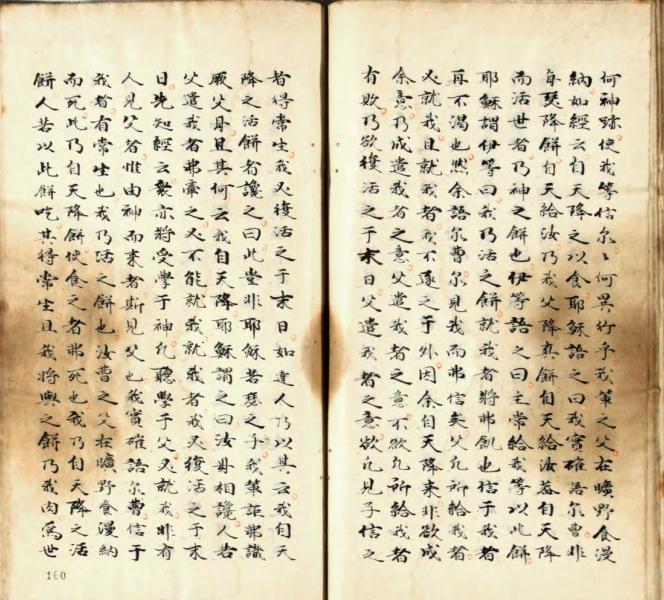 何神跡使我等信尔々何異行乎我軰之父在曠野食漫
納如經云自天降之以食耶穌語之曰我實確語尔曹非
每瑟降餅自天給汝乃我父降真餅自天給汝葢自天降
而活世者乃神之餅也伊等語之曰主常給我等以此餅
耶穌謂伊等曰我乃活之餅就我者將弗飢也信于我者
再不渴也然余語尔曹尔見我而弗信矣父凢所給我者
必就我且就我者我不逐之于外因余自天降来非欲成
余意乃成遣我者之意父遣我者之意不欲凢所給我者
有敗乃欲復活之于末日父遣我者之意欲凢見子信之
者得常生我必復活之于末日如達人乃以其云我自天
降之活餅者譏之曰此豈非耶穌若瑟之子我軰詎弗識
厥父母且其何云我自天降耶穌謂之曰汝毋相譏人若
父遣我者弗牽之必不能就我就我者我必復活之于末
日先知經云衆亦將受學于神凢聽學于父必就我非有
人見父者惟由神而来者斯見父也我實確語尔曹信于
我者有常生也我乃活之餅也汝曹之父在曠野食漫納
而死此乃自天降餅使食之者弗死也我乃自天降之活
餅人若以此餅吃其得常生且我將與之餅乃我肉為世
160